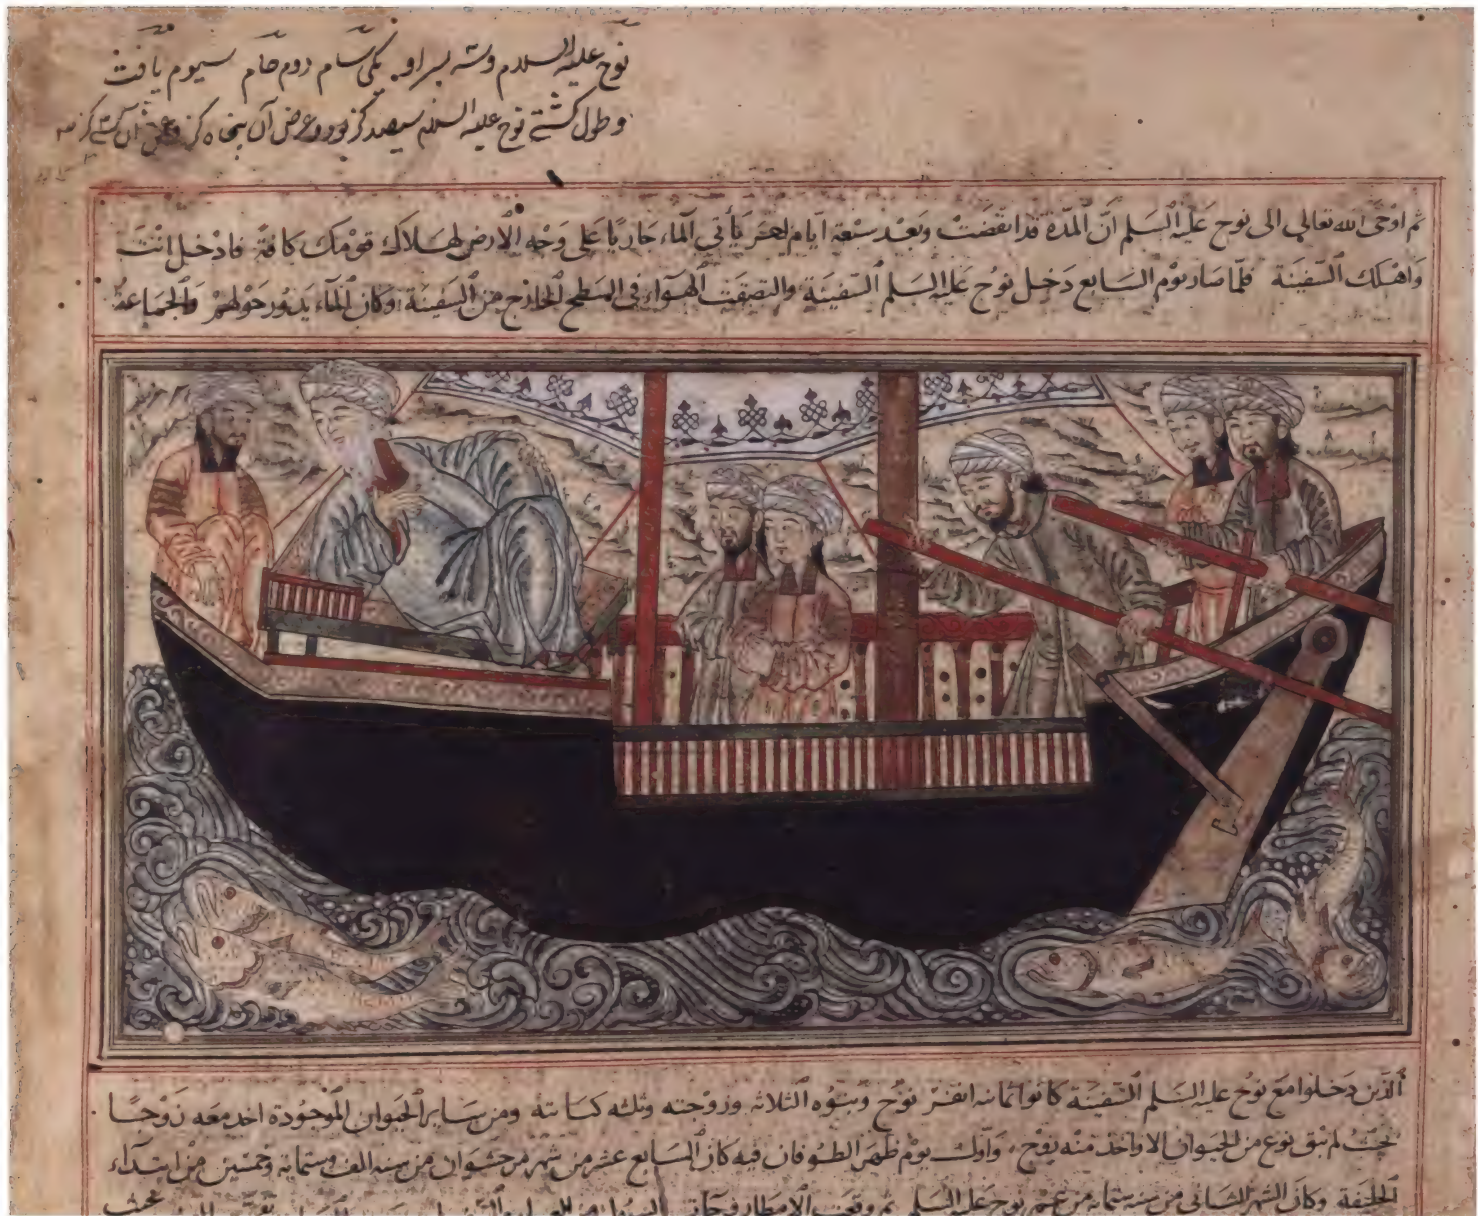 نوح عليه السلام وسه پسر او يكى سام دوم حام سيوم يافت
و طول كشتى نوح عليه السلام سيصد كز بود و عرض آن پنجاه كز و آن كشتى كز
ثم اوحى الله تعالى الى نوح عليه السلم ان المدة قد انقضت وبعد سبعة ايام يأتي المآء جاريا على وجه الارض لهلاك قومك كافة فادخل انت
واهلك السفينة فلما صار يوم السابع دخل نوح عليه السلم السفينة والتصقت الهوآء في السطح الخارج من السفينة وكان المآء يدور حولهم والجماعة
الذين دخلوا مع نوح عليه السلم السفينة كانوا ثمانية انفر نوح وبنوه الثلاثه وزوجته وثلثه كناته ومن ساير الحيوان الموجودة اخذ معه زوجا
بحيث لم يبق نوع من الحيوان الا واخذ منه زوج واول يوم ظهر الطوفان فيه كان السابع عشر من شهر مرحشوان من سنه الف وستمايه وخمسين من ابتدآء
الخليقة وكان الشهر الثانى من سنه ستمايه من عمر نوح عليه السلم ثم وقعت الامطار